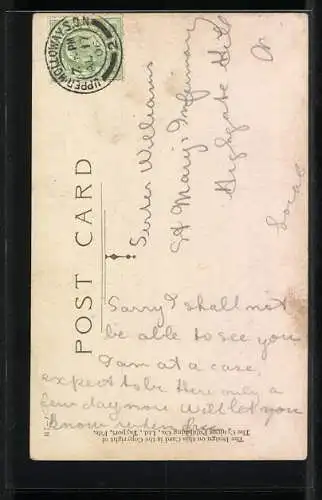 UPPER HOLLOWAY S.O.N.
2
POST CARD
Sister Williams
St Mary's Infirmary
Highgate Hill
N
Local
Sorry I shall not
be able to see you
I am at a case,
expect to be there only a
few days more will let you
know when free
The Design on this Card is the Copyright of
The Cynicus Publishing Co., Ltd., Tayport, Fife.